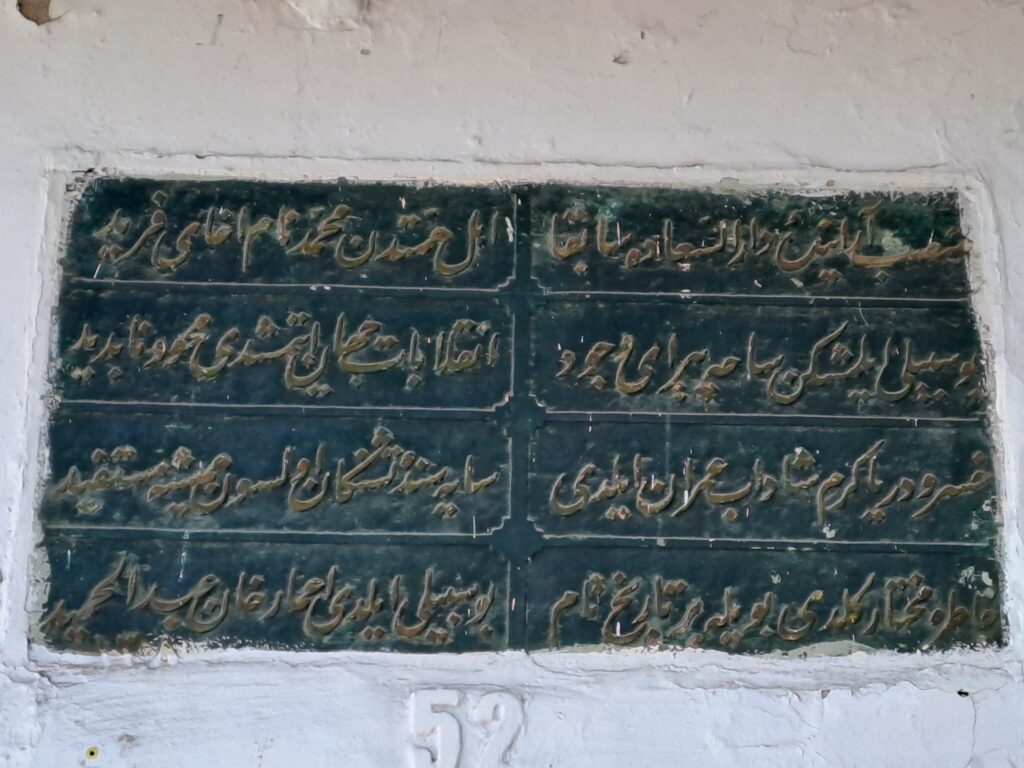 دار السعاده سابقا اهل همتدن محمد نام اغای فرید
بو سبیلی ایلمشكن ساحه پیرای وجود انقلابات جهان ایتمشدی محو و نابدید
خسرو دریا كرم شاداب عمران ایلدی سایه سنده تشنكان اولسون همیشه مستفید
مختار كلدی بویله بر تاریخ تام بو سبیلی ایلدی اعمار خان عبد الحمید
52